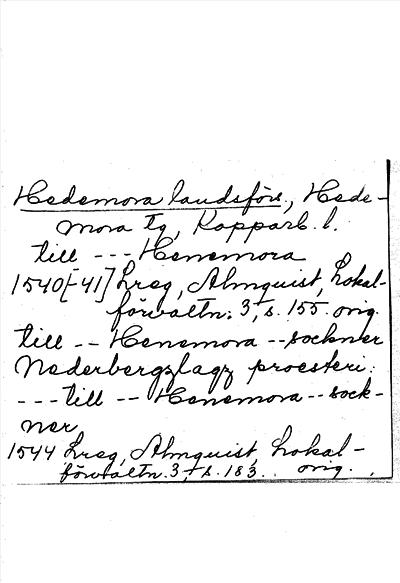 Hedemora landsförs., Hede-
mora tg, Kopparb. l.
till --- Henemora
1540[-41] Lreg, Almquist, Lokal-
förvaltn. 3, s. 155. orig.
till -- Henemora -- sockner
Nederbergzlagz proesteri:
--- till -- Henemora -- sock-
ner
1544 Lreg, Almquist, Lokal-
förvaltn. 3, s. 183. orig.